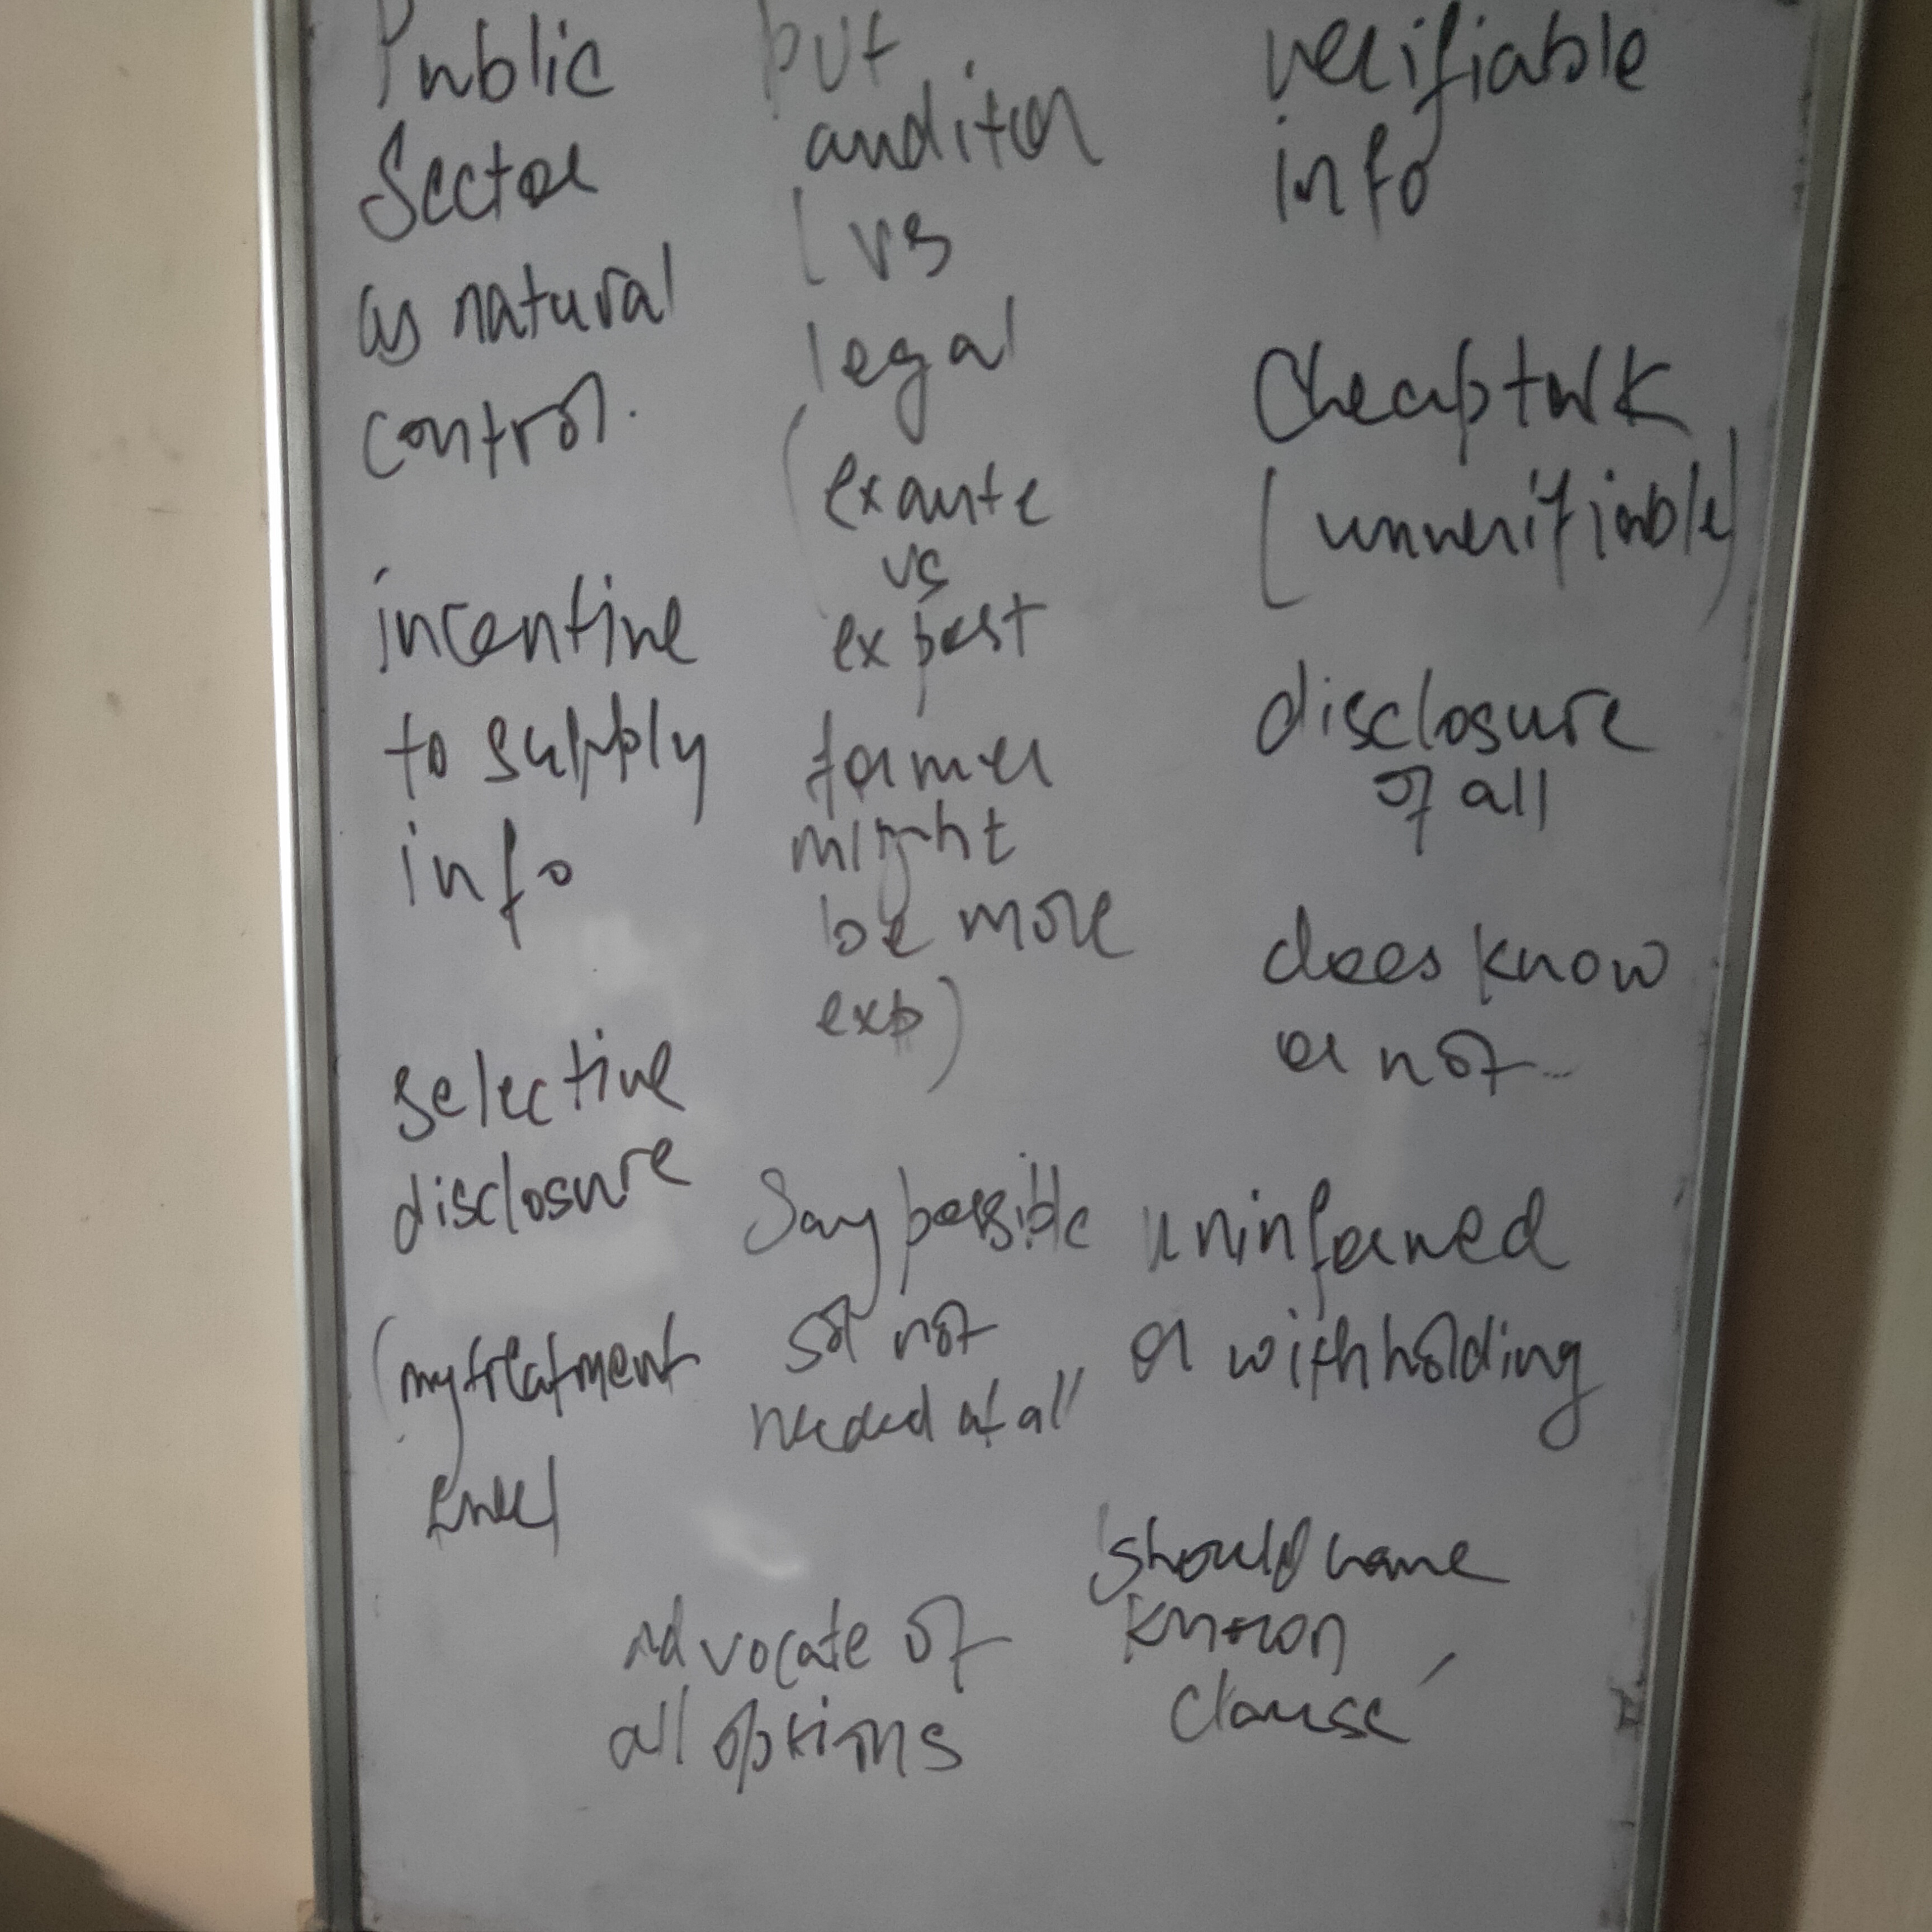 Public
Sector
as natural
control.
incentive
to supply
info
selective
disclosure
(my treatment
but
auditor
(vs
legal
(ex ante
vs
ex post
former
might
be more
exp)
Say possible
not
needed at all
advocate of
all options
verifiable
info
Cheap talk
(unverifiable)
disclosure
of all
does know
or not...
uninformed
or withholding
'should have
known
clause'